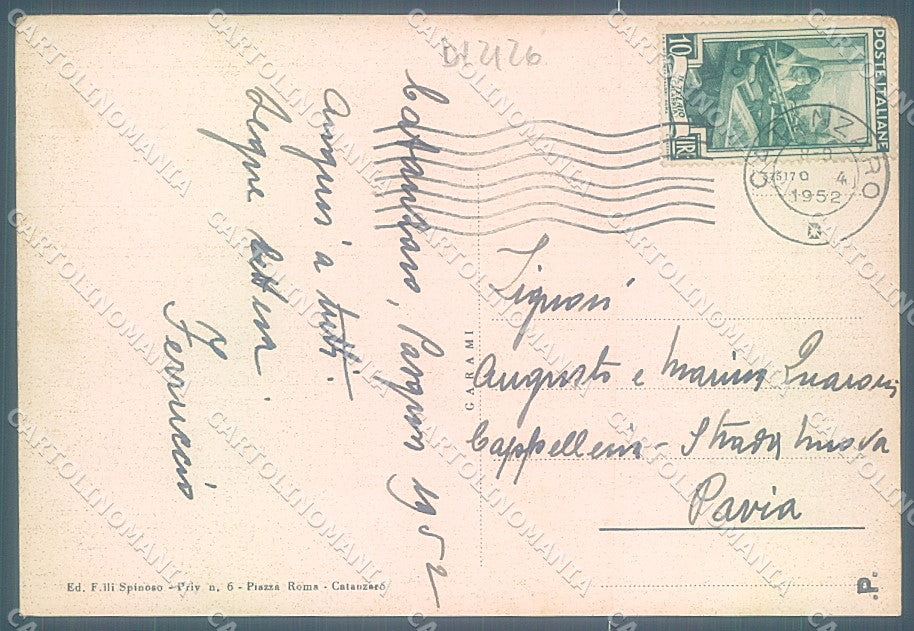 D12126
Catanzaro, Pasqua 1952
Auguri a tutti
Segue lettera
Ferruccio
10
POSTE ITALIANE
LIRE
CATANZARO
4
1952
GARAMI
Signori
Augusto e Marina
Cappelleria - Strada Nuova
Pavia
Ed. F.lli Spinoso - Priv n. 6 - Piazza Roma - Catanzaro
.P.
CARTOLINOMANIA